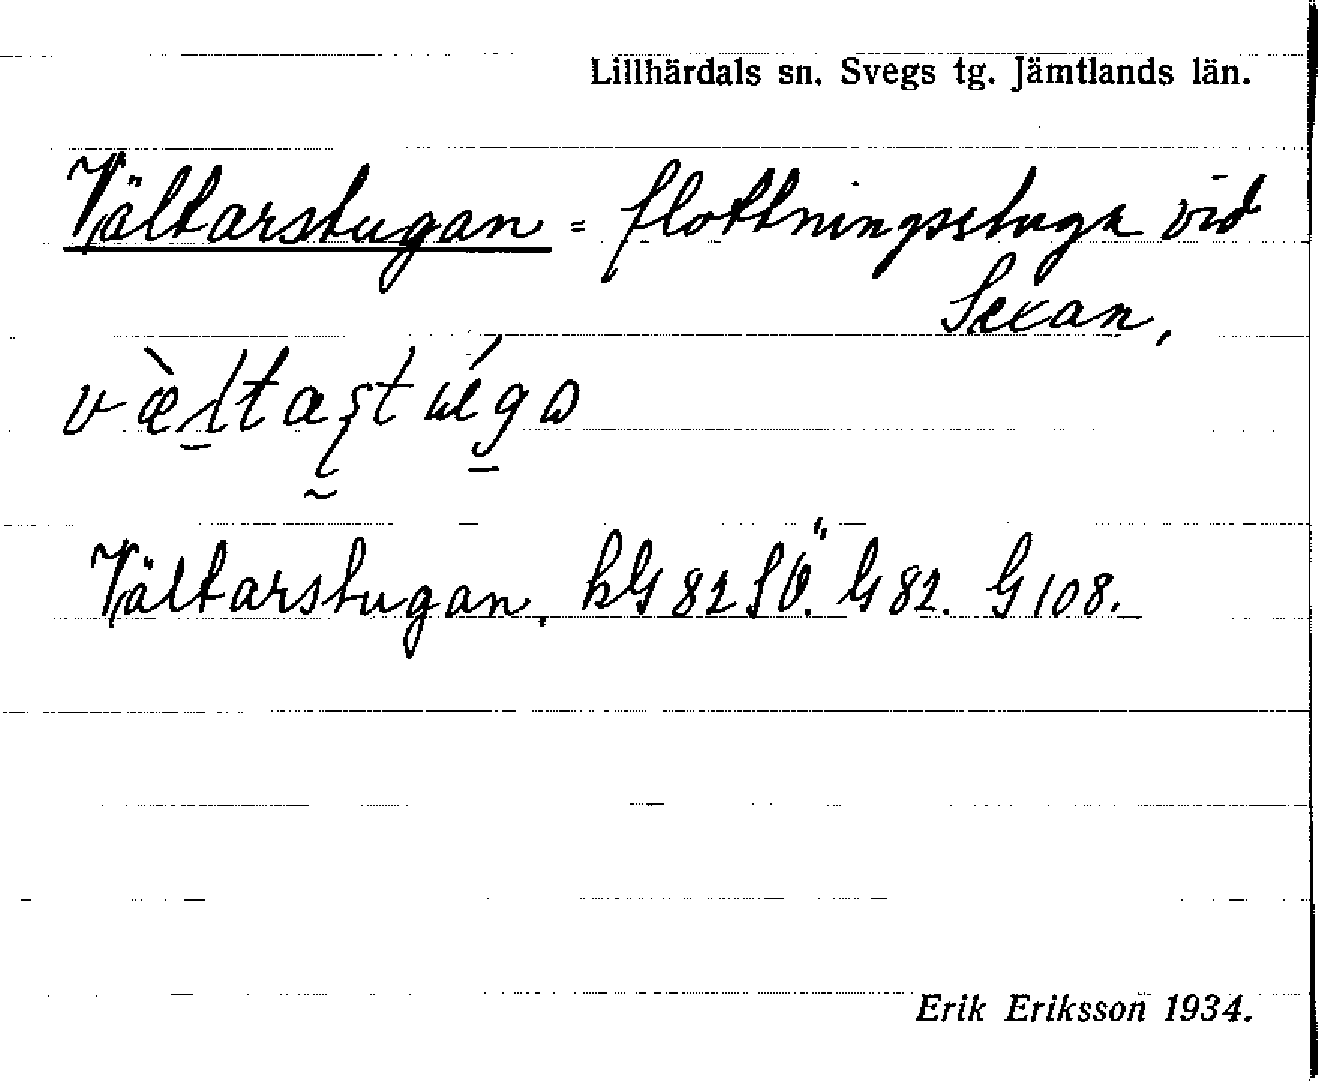 Lillhärdals sn. Svegs tg. Jämtlands län.
Vältarstugan = flottningsstuga vid
Sexan,
Vältarstugan, hG 82 SÖ. G 82. G 108.
Erik Eriksson 1934.